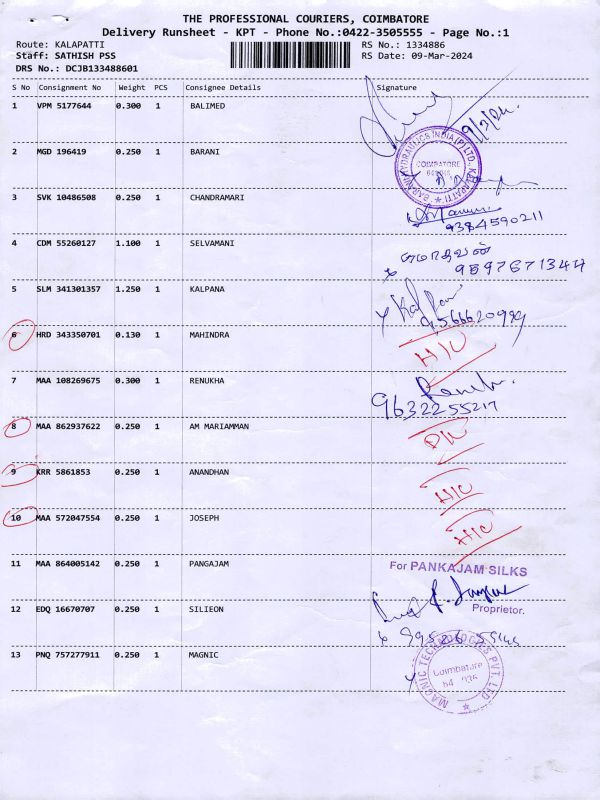 THE PROFESSIONAL COURIERS, COIMBATORE
Delivery Runsheet - KPT - Phone No.:0422-3505555 - Page No.:1
Route: KALAPATTI
RS No.: 1334886
Staff: SATHISH PSS
RS Date: 09-Mar-2024
DRS No.: DCJB133488601
S No Consignment No Weight PCS Consignee Details Signature
1 VPM 5177644 0.300 1 BALIMED
9/3/24
2 MGD 196419 0.250 1 BARANI
BARANI HYDRAULICS INDIA (P) LTD., KALAPATTI
COIMBATORE
3 SVK 10486508 0.250 1 CHANDRAMARI
9384590211
4 CDM 55260127 1.100 1 SELVAMANI
9597671344
5 SLM 341301357 1.250 1 KALPANA
6 HRD 343350701 0.130 1 MAHINDRA
H/C
7 MAA 108269675 0.300 1 RENUKHA
9632255217
8 MAA 862937622 0.250 1 AM MARIAMMAN
9 KRR 5861853 0.250 1 ANANDHAN
H/C
10 MAA 572047554 0.250 1 JOSEPH
H/C
11 MAA 864005142 0.250 1 PANGAJAM
For PANKAJAM SILKS
Proprietor.
12 EDQ 16670707 0.250 1 SILIEON
13 PNQ 757277911 0.250 1 MAGNIC
MAGNIC TECHNOLOGIES PVT. LTD
Coimbatore